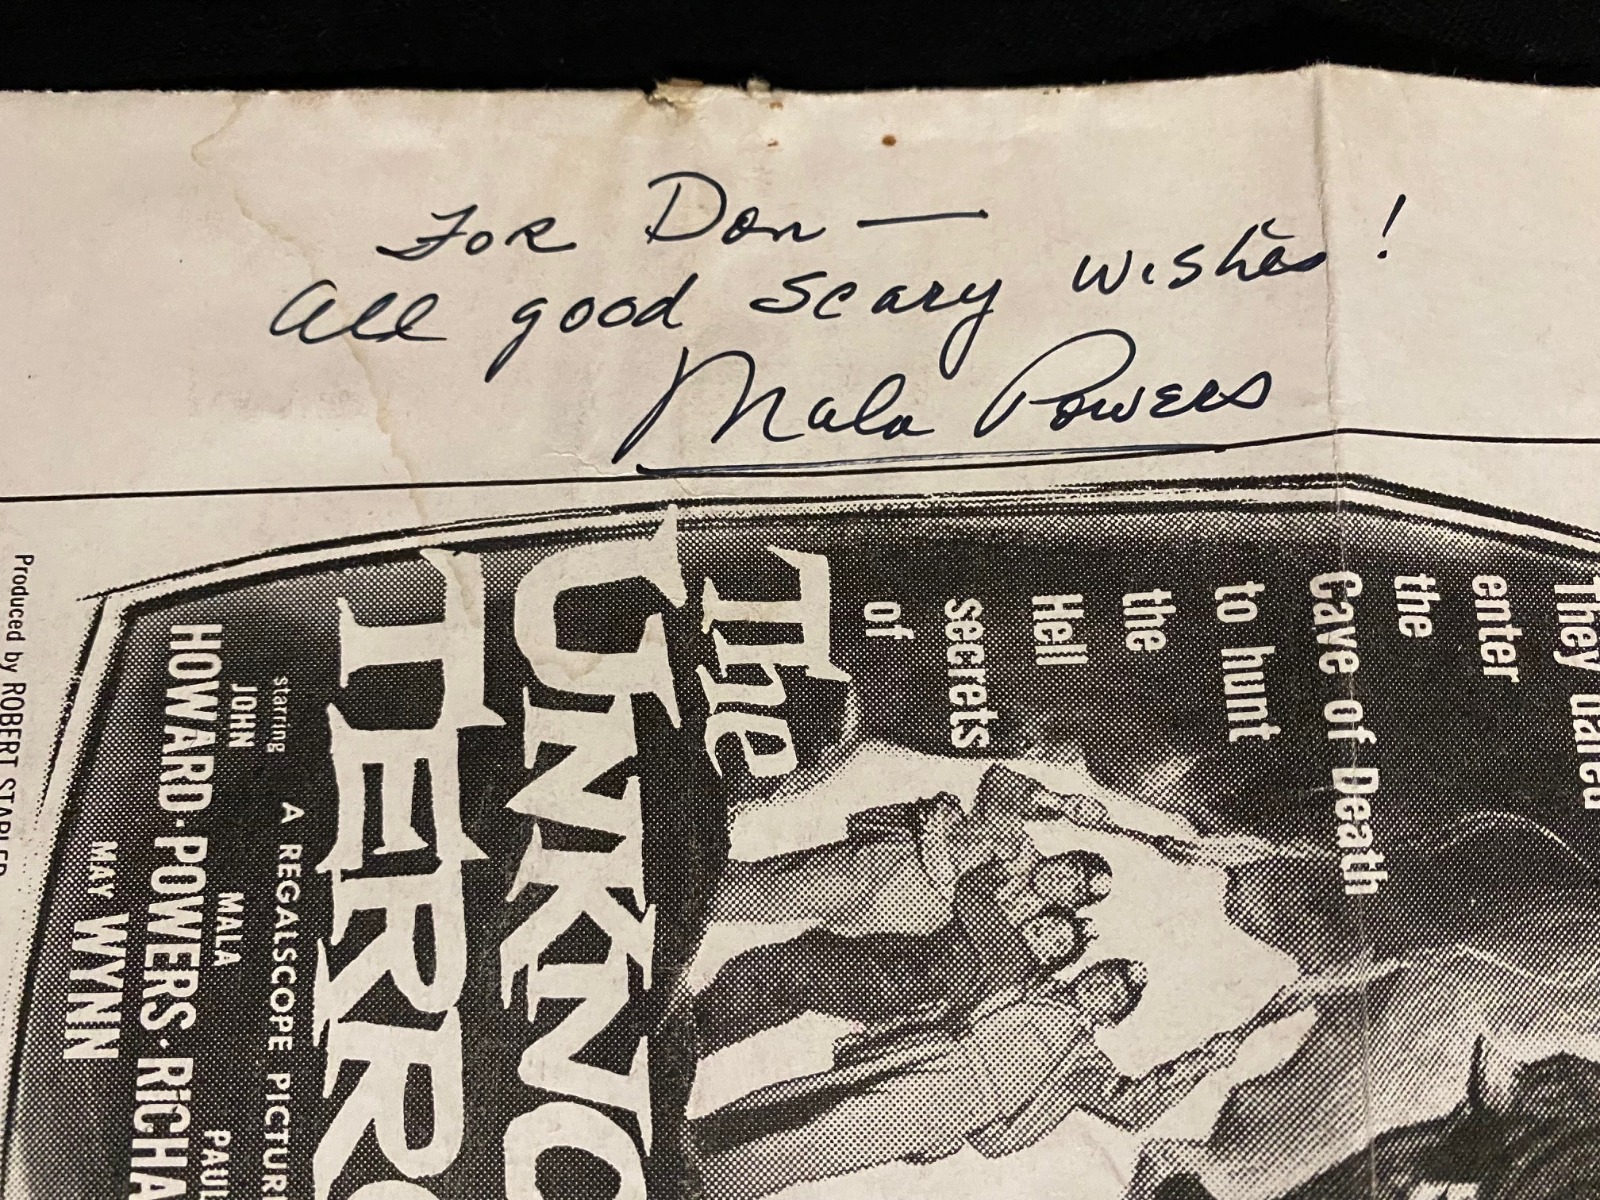 For Don —
All good scary wishes!
Mala Powers
They dared
enter
the
Cave of Death
to hunt
the
Hell
secrets
of
The
UNKNO
TERRO
starring
A REGALSCOPE PICTUR
JOHN MALA PAUL
HOWARD·POWERS·RICHA
MAY WYNN
Produced by ROBERT STABLER